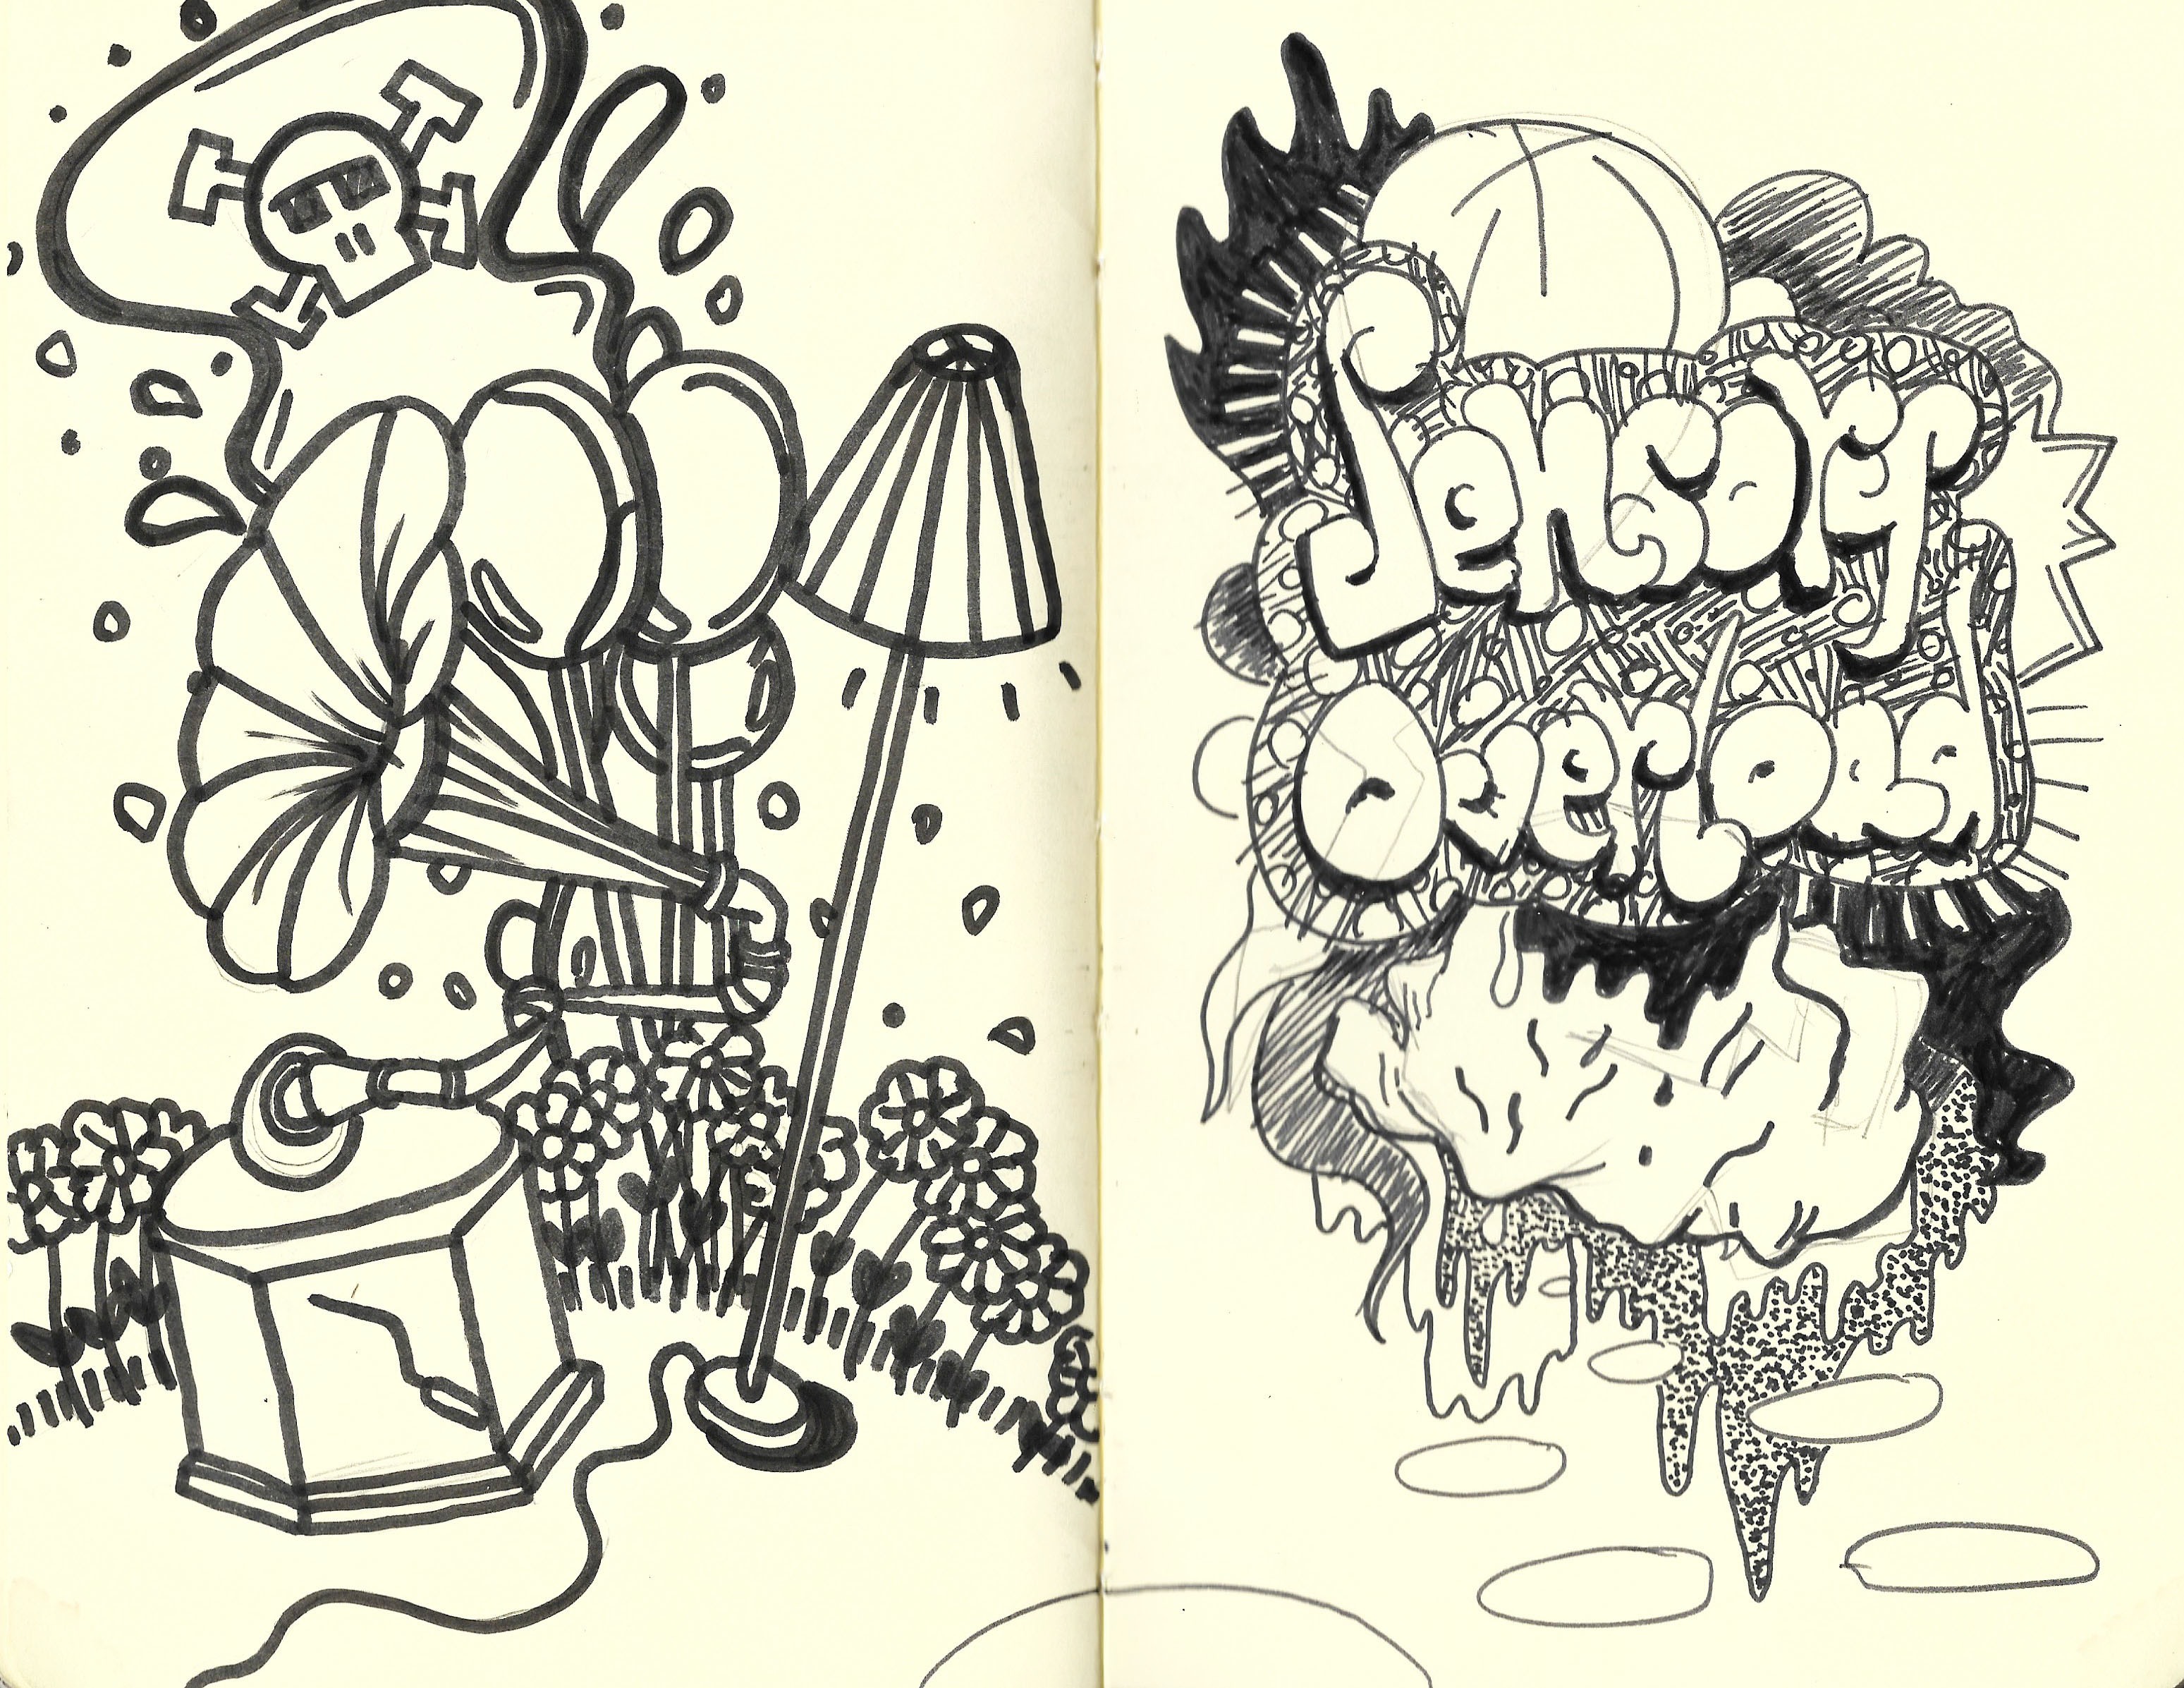 Sensory
overload